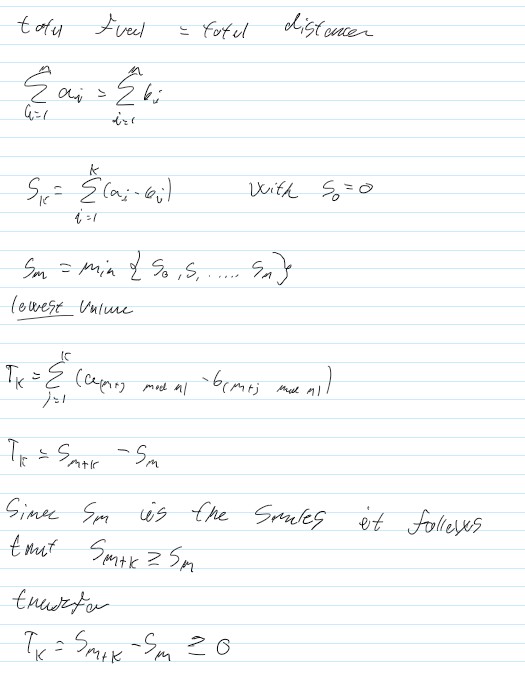 total fuel = total distance
n∑i=1 ai = n∑i=1 bi
SK = K∑i=1 (ai - bi) with S0 = 0
Sm = min { S0, S1 ..... Sn }
lowest value
TK = K∑j=1 (a(m+j mod n) - b(m+j mod n))
TK = Sm+K - Sm
Since Sm is the smales it follows
that Sm+K ≥ Sm
TK = Sm+K - Sm ≥ 0